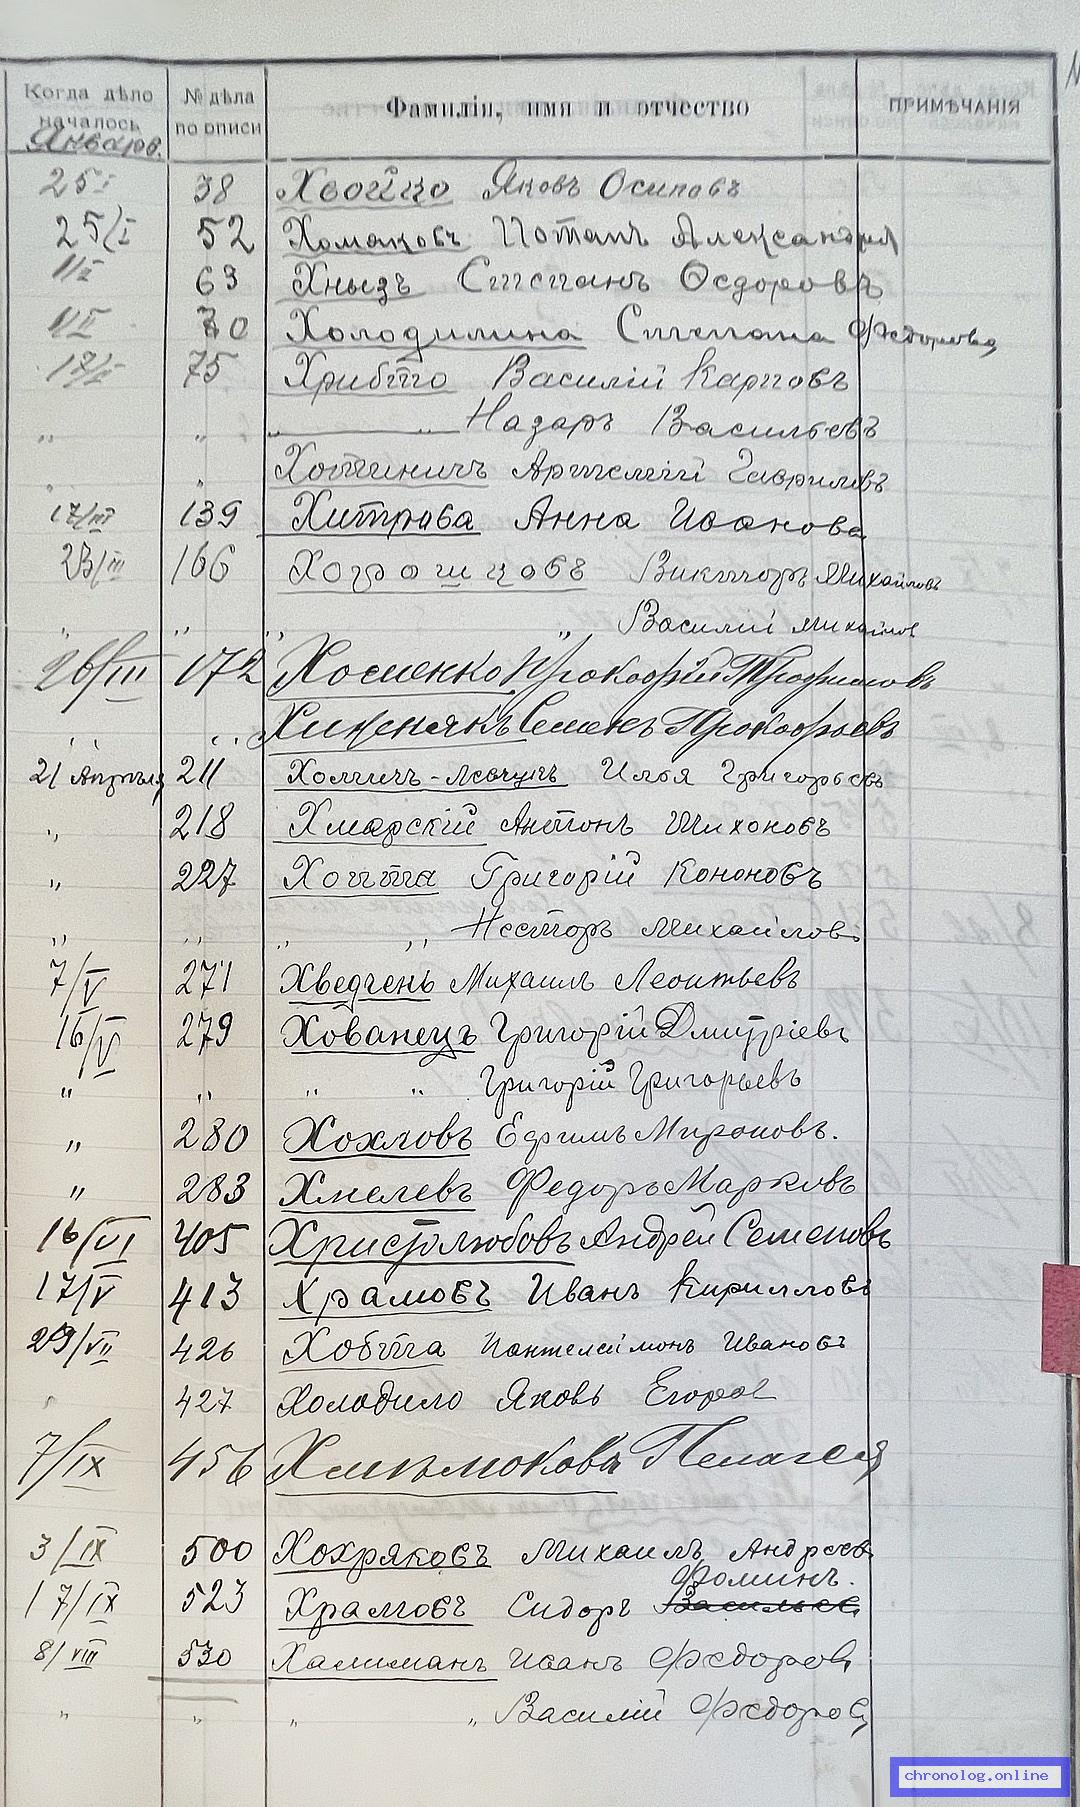 Когда дѣло началось № дѣла по описи Фамилія, имя и отчество ПРИМѢЧАНІЯ
Январ.
25 I 38 Хвойко Яковъ Осиповъ
25/I 52 Хомаковъ Потапъ Александр
1/II 63 Хныдъ Степанъ Ѳедоровъ
1/II 70 Холодилина Степана Федорова
17/I 75 Хрибто Василій Карповъ
" " " " Назаръ Васильевъ
" " Хотиничъ Артемій Гавриловъ
17/III 139 Хитрова Анна Иванова
23/III 166 Викторъ Михайловъ
" " " " Василій Михайлов
26/III 172 Хоменко Прокофій Трофимовъ
" " Хиженякъ Семенъ Прокофьевъ
21 Апрѣля 211 Холмичъ- Илья Григорьевъ
" 218 Хмарскій Антонъ Тихоновъ
" 227 Хотта Григорій Кононовъ
" " " " Несторъ Михайлов
7/V 271 Хведчень Михаилъ Леонтьевъ
16/V 279 Хованецъ Григорій Дмитріевъ
" " " " Григорій Григорьевъ
" 280 Хохловъ Ефимъ Мироновъ.
" 283 Хмелевъ Федоръ Марковъ
16/VI 405 Христолюбовъ Андрей Семеновъ
17/V 413 Храмовъ Иванъ Кирилловъ
29/VII 426 Хобта Пантелеймонъ Ивановъ
" 427 Холодило Яковъ Егоров
7/IX 456 Пелагея
3/IX 500 Хохряковъ Михаилъ Андреев
Фоминъ.
17/IX 523 Храмовъ Сидоръ Васильев
8/VIII 530 Халиманъ Иванъ Федоров
" " " " Василій Федоров
chronolog.online